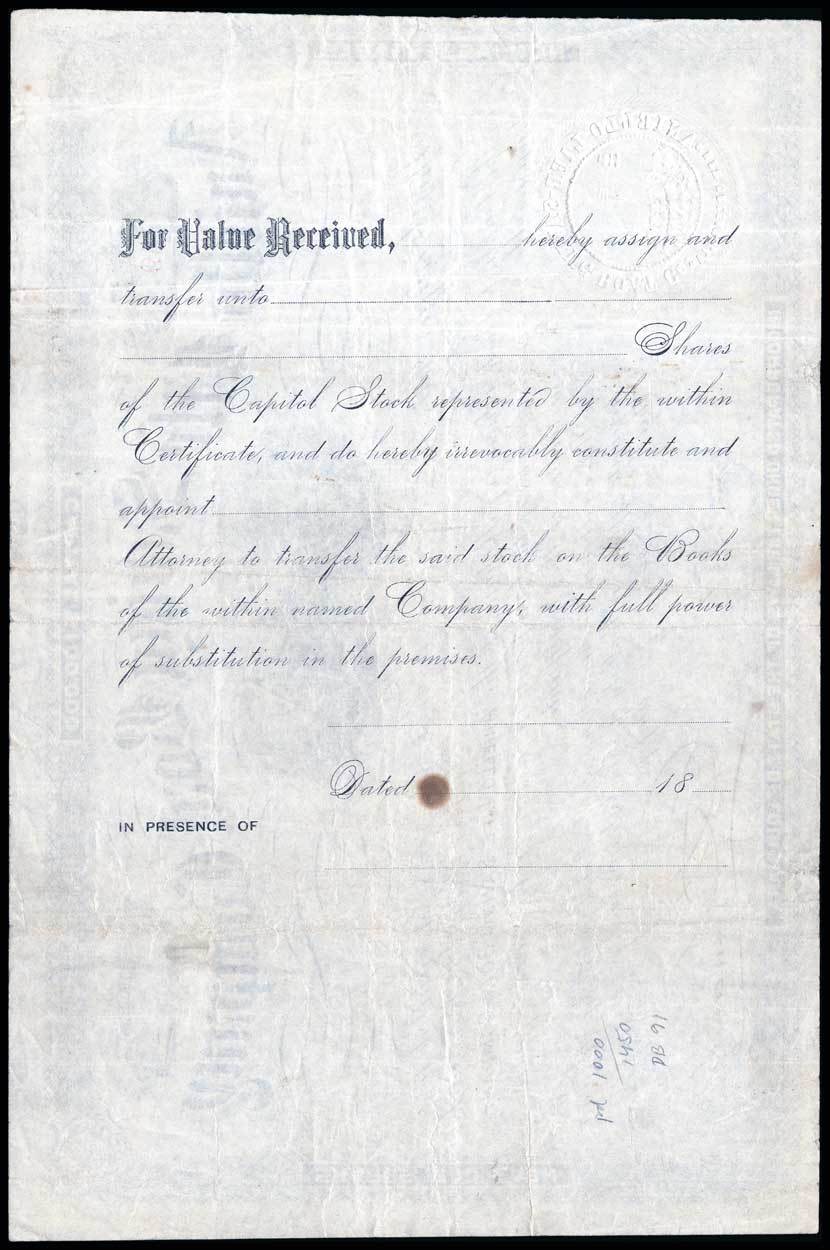 For Value Received, hereby assign and
transfer unto
Shares
of the Capitol Stock represented by the within
Certificate, and do hereby irrevocably constitute and
appoint
Attorney to transfer the said stock on the Books
of the within named Company, with full power
of substitution in the premises.
Dated 18
IN PRESENCE OF
1450
1000